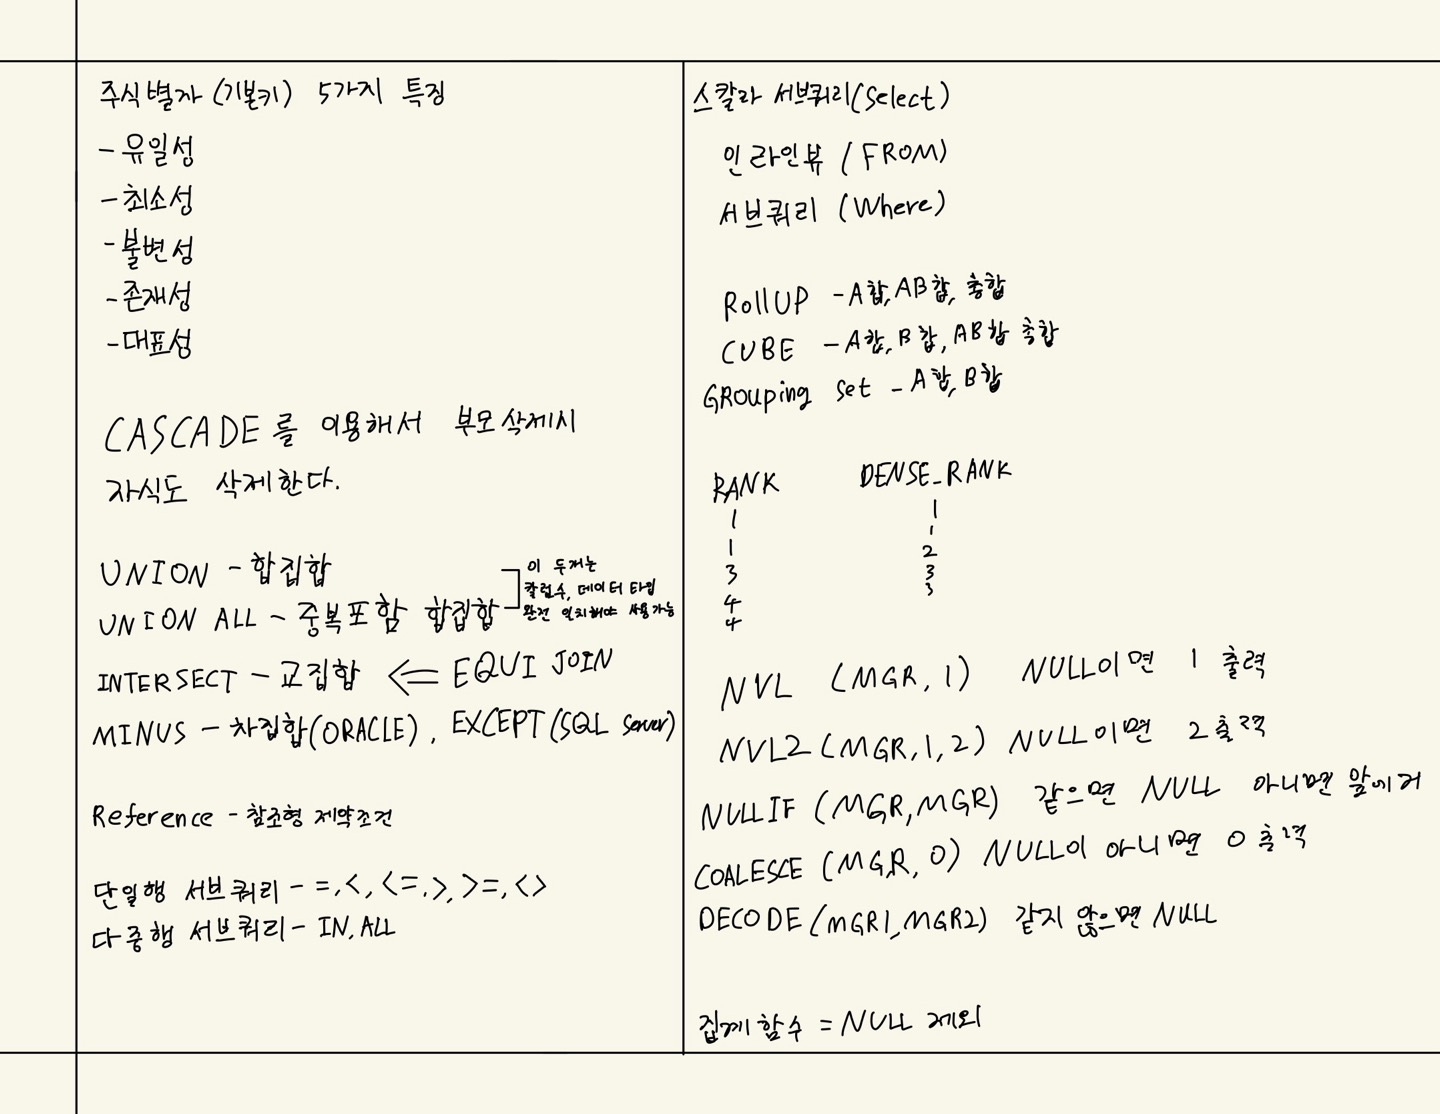 주식별자 (기본키) 5가지 특징
- 유일성
- 최소성
- 불변성
- 존재성
- 대표성
CASCADE를 이용해서 부모삭제시
자식도 삭제한다.
UNION - 합집합
UNION ALL - 중복포함 합집합
이 두개는
칼럼수, 데이터 타입
완전 일치해야 사용가능
INTERSECT - 교집합 <= EQUI JOIN
MINUS - 차집합(ORACLE), EXCEPT(SQL Server)
Reference - 참조형 제약조건
단일행 서브쿼리 - =, <, <=, >, >=, <>
다중행 서브쿼리 - IN, ALL
스칼라 서브쿼리(Select)
인라인뷰 (FROM)
서브쿼리 (Where)
RollUP - A합, AB합, 총합
CUBE - A합, B합, AB합 총합
GROuping set - A합, B합
RANK DENSE_RANK
1 1
1 1
3 2
4 3
4 3
NVL (MGR, 1) NULL이면 1 출력
NVL2 (MGR, 1, 2) NULL이면 2 출력
NULLIF (MGR, MGR) 같으면 NULL 아니면 앞에거
COALESCE (MGR, 0) NULL이 아니면 0 출력
DECODE (MGR1, MGR2) 같지 않으면 NULL
집계함수 = NULL 제외